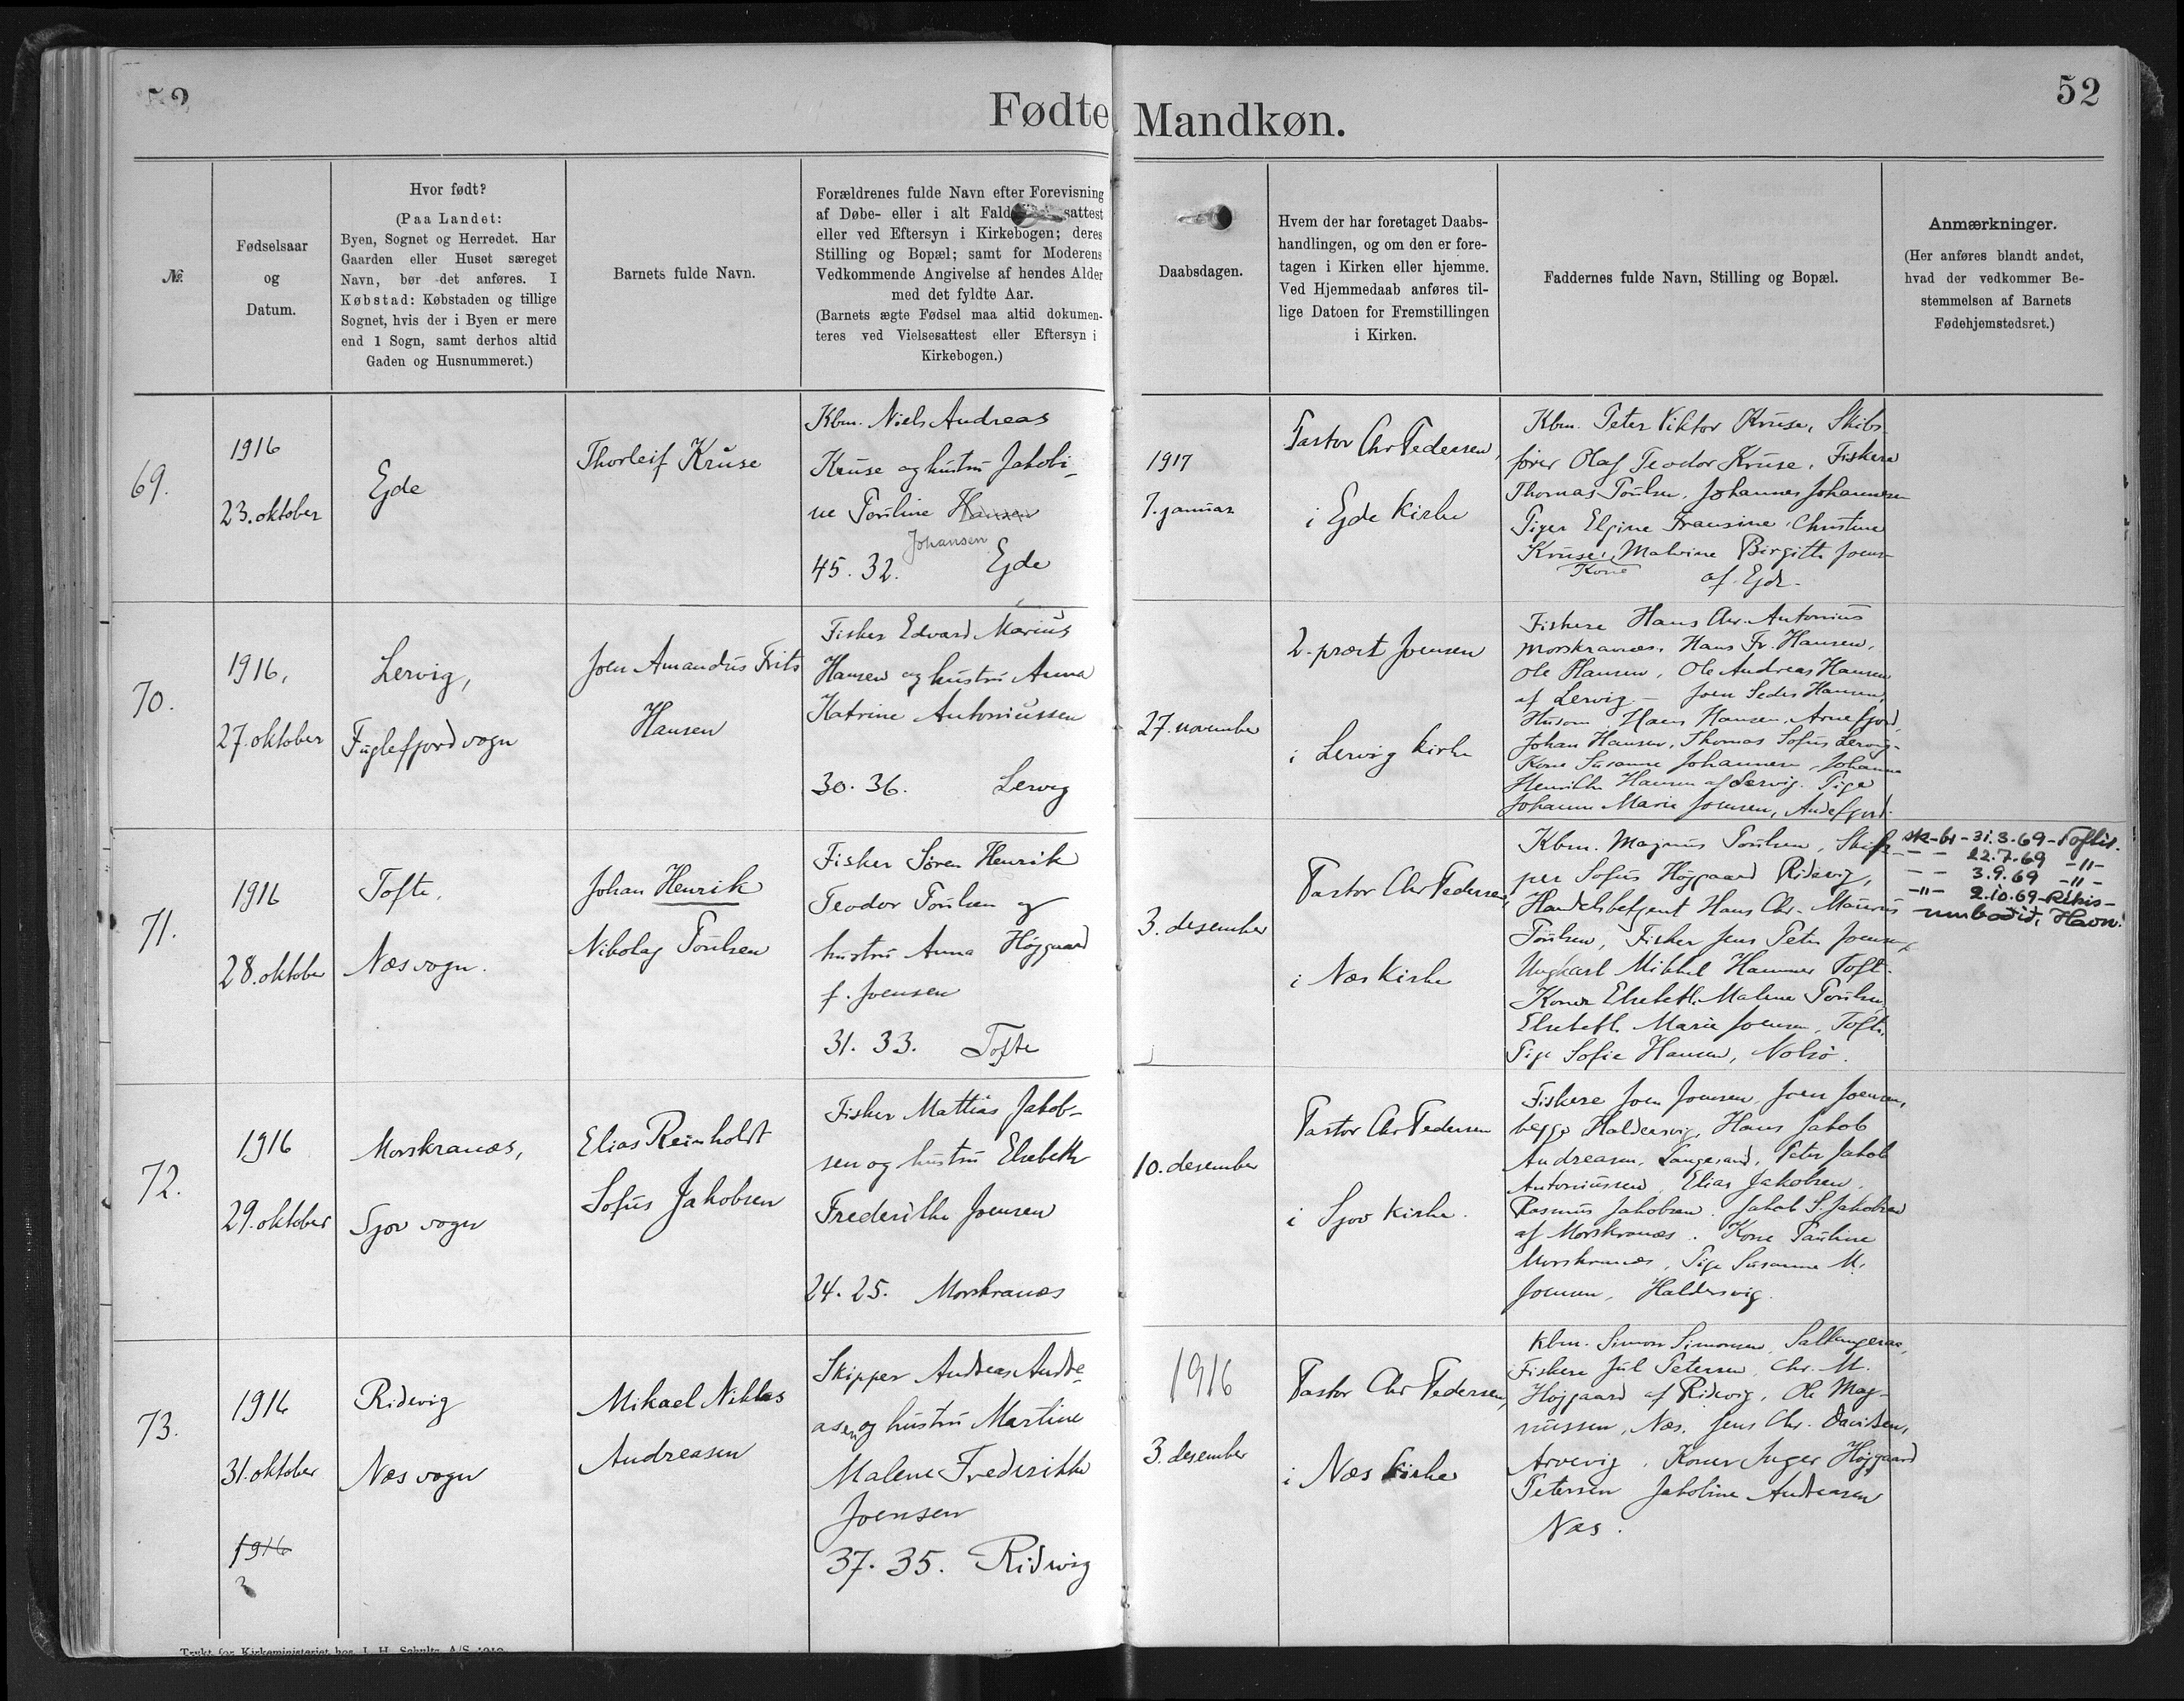 52
Fødte Mandkøn.
52
№.
Fødselsaar
og
Datum.
Hvor født?
(Paa Landet:
Byen, Sognet og Herredet. Har
Gaarden eller Huset særeget
Navn, bør det anføres. I
Købstad: Købstaden og tillige
Sognet, hvis der i Byen er mere
end 1 Sogn, samt derhos altid
Gaden og Husnummeret.)
Barnets fulde Navn.
Forældrenes fulde Navn efter Forevisning
af Døbe- eller i alt Fald sattest
eller ved Eftersyn i Kirkebogen; deres
Stilling og Bopæl; samt for Moderens
Vedkommende Angivelse af hendes Alder
med det fyldte Aar.
(Barnets ægte Fødsel maa altid dokumen-
teres ved Vielsesattest eller Eftersyn i
Kirkebogen.)
Daabsdagen.
Hvem der har foretaget Daabs-
handlingen, og om den er fore-
tagen i Kirken eller hjemme.
Ved Hjemmedaab anføres til-
lige Datoen for Fremstillingen
i Kirken.
Faddernes fulde Navn, Stilling og Bopæl.
Anmærkninger.
(Her anføres blandt andet,
hvad der vedkommer Be-
stemmelsen af Barnets
Fødehjemstedsret.)
69.
1916
23. oktober
Ejde
Thorleif Kruse
Kbm. Niels Andreas
Kruse og hustru Jakobi-
ne Pouline Hansen
Johansen
45. 32. Ejde
1917
7. januar
Pastor Chr Pedersen,
i Ejde kirke
Kbm. Peter Viktor Kruse, Skibs-
fører Olaf Teodor Kruse, Fiskere
Thomas Poulsen, Johannes Johannesen
Piger Elgine Fransine, Christine
Kruse, Malvine Birgitte Joens-
Kone
af Ejde-
70.
1916,
27. oktober
Lervig,
Fuglefjord sogn
Joen Amandus Frits
Hansen
Fisker Edvard Marius
Hansen og hustru Anna
Katrine Antoniussen
30. 36. Lervig
27. november
2. præst Joensen
i Lervig kirke
Fiskere Hans Chr. Antonius
Morskranæs, Hans Fr. Hansen,
Ole Hansen, Ole Andreas Hansen
af Lervig - Joen Hansen,
Husom, Hans Hansen, Arnefjord,
Johan Hansen, Thomas Sofus Lervig-
Kone Susanne Johannesen, Johanne
Henrikke Hansen af Lervig. Pige
Johanne Marie Joensen, Andefjord.
71.
1916
28. oktober
Tofte,
Næs sogn.
Johan Henrik
Nikolaj Poulsen
Fisker Søren Henrik
Teodor Poulsen og
hustru Anna Højgaard
f. Joensen
31. 33. Tofte
3. desember
Pastor Chr Pedersen,
i Næs kirke
Kbm. Magnus Poulsen, Skip-
per Sofus Højgaard Ridevig,
Handelsbetjent Hans Chr. Maurus
Poulsen, Fisker Jens Peter Joensen,
Ungkarl Mikkel Hammer Toft-
Koner Elsebeth Malene Poulsen,
Elsebeth Marie Joensen, Tofte,
Pige Sofie Hansen, Nolsø.
sk-br-31.3.69-Toftir.
- - 22.7.69 -"-
- - 3.9.69 -"-
-"- 2.10.69-Rikis-
umboðið, Havn.
72.
1916
29. oktober
Morskranæs,
Sjov sogn
Elias Reinholdt
Sofus Jakobsen
Fisker Mattias Jakob-
sen og hustru Elsebeth
Frederikke Joensen
24. 25. Morskranæs
10. desember
Pastor Chr Pedersen
i Sjov kirke.
Fiskere Joen Joensen, Joen Joensen,
begge Haldersvig, Hans Jakob
Andreasen, Langesand, Peter Jakob
Antoniussen, Elias Jakobsen,
Rasmus Jakobsen. Jakob S. Jakobsen
af Morskranæs. Kone Pauline
Morskranæs, Pige Susanne M.
Joensen, Haldersvig.
73.
1916
31. oktober
1916
3
Ridevig
Næs sogn
Mikael Niklas
Andreasen
Skipper Andreas Andre-
asen og hustru Martine
Malene Frederikke
Joensen
37. 35. Ridevig
1916
3. desember
Pastor Chr Pedersen,
i Næs kirke
Kbm. Simon Simonsen, Saltangeraa,
Fiskere Jul Petersen, Chr. M.
Højgaard af Ridevig, Ole Mag-
nussen, Næs, Jens Chr. Davidsen,
Arvevig. Koner Inger Højgaard
Petersen Jakobine Andreasen
Næs.
Trykt for Kirkeministeriet hos J. H. Schultz A/S